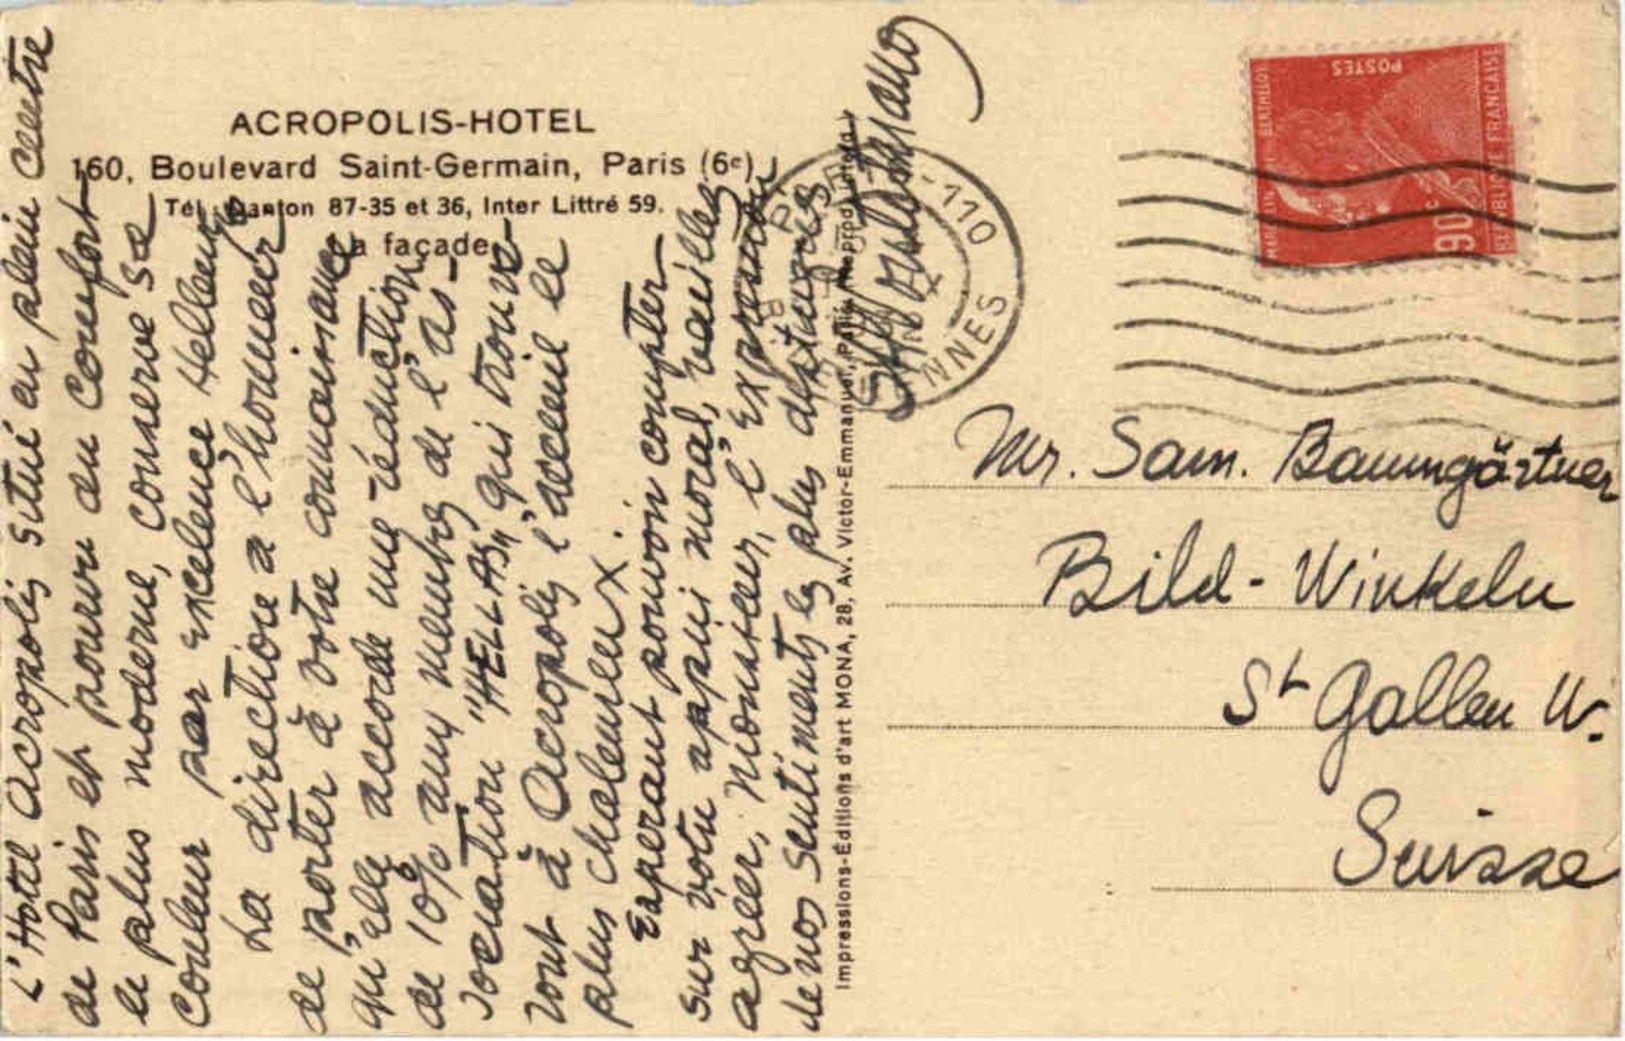 ACROPOLIS-HOTEL
160, Boulevard Saint-Germain, Paris (6e)
Tél. Danton 87-35 et 36, Inter Littré 59.
La façade
L'Hotel Acropolis situé en plein centre
de Paris et pourvu du confort
le plus moderne, conserve sa
couleur par excelence Hellenique
La direction a l'honneur
de porter à votre connaissance
qu'elle accorde une réduction
de 10% aux membres de l'as-
sociation "HELLAS" qui trouve-
ront à Acropolis l'acceuil le
plus chaleureux.
Esperant pouvoir compter
sur votre appui moral, veuillez
agréer, Monsieur, l'expression
de nos sentiments les plus distingués
Impressions-Éditions d'art MONA, 28, Av. Victor-Emmanuel, Paris (Reprod. interd.)
PARIS
110
NNES
POSTES
BERTHELOT
90c
REPUBLIQUE FRANCAISE
Mr. Sam. Baumgärtner
Bild-Winkeln
St Gallen W.
Suisse